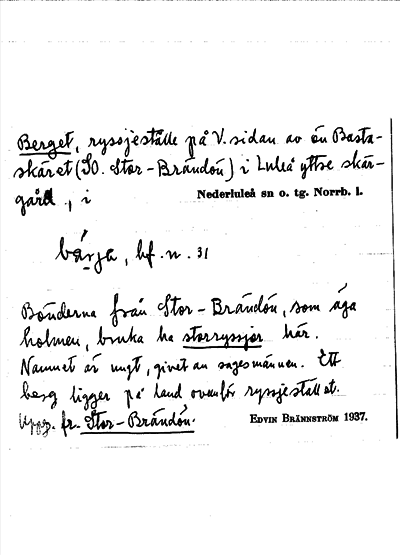 Berget, ryssjeställe på V. sidan av ön Basta-
skäret (SO. Stor-Brändön) i Luleå yttre skär-
gård, i Nederluleå sn o. tg. Norrb. l.
bärja, bf. n. 31
Bönderna från Stor-Brändön, som äga
holmen, bruka ha storryssjor här.
Namnet är ungt, givet av sagesmännen. Ett
berg ligger på land ovanför ryssjestället.
Uppg. fr. Stor-Brändön.
EDVIN BRÄNNSTRÖM 1937.